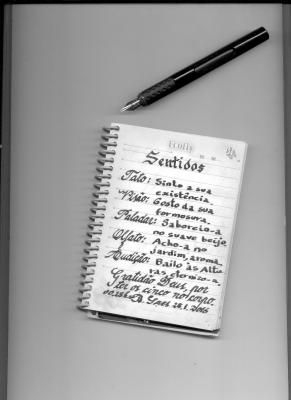 Sentidos
Tato: Sinto a sua
existência.
Visão: Gosto da sua
formosura.
Paladar: Saboreio-a
no suave beijo
Olfato: Acho-a no
jardim, aroma
Audição: Bailo às Altu
ras, eterniza-a,
Gratidão Deus, por
ter os cinco no corpo.